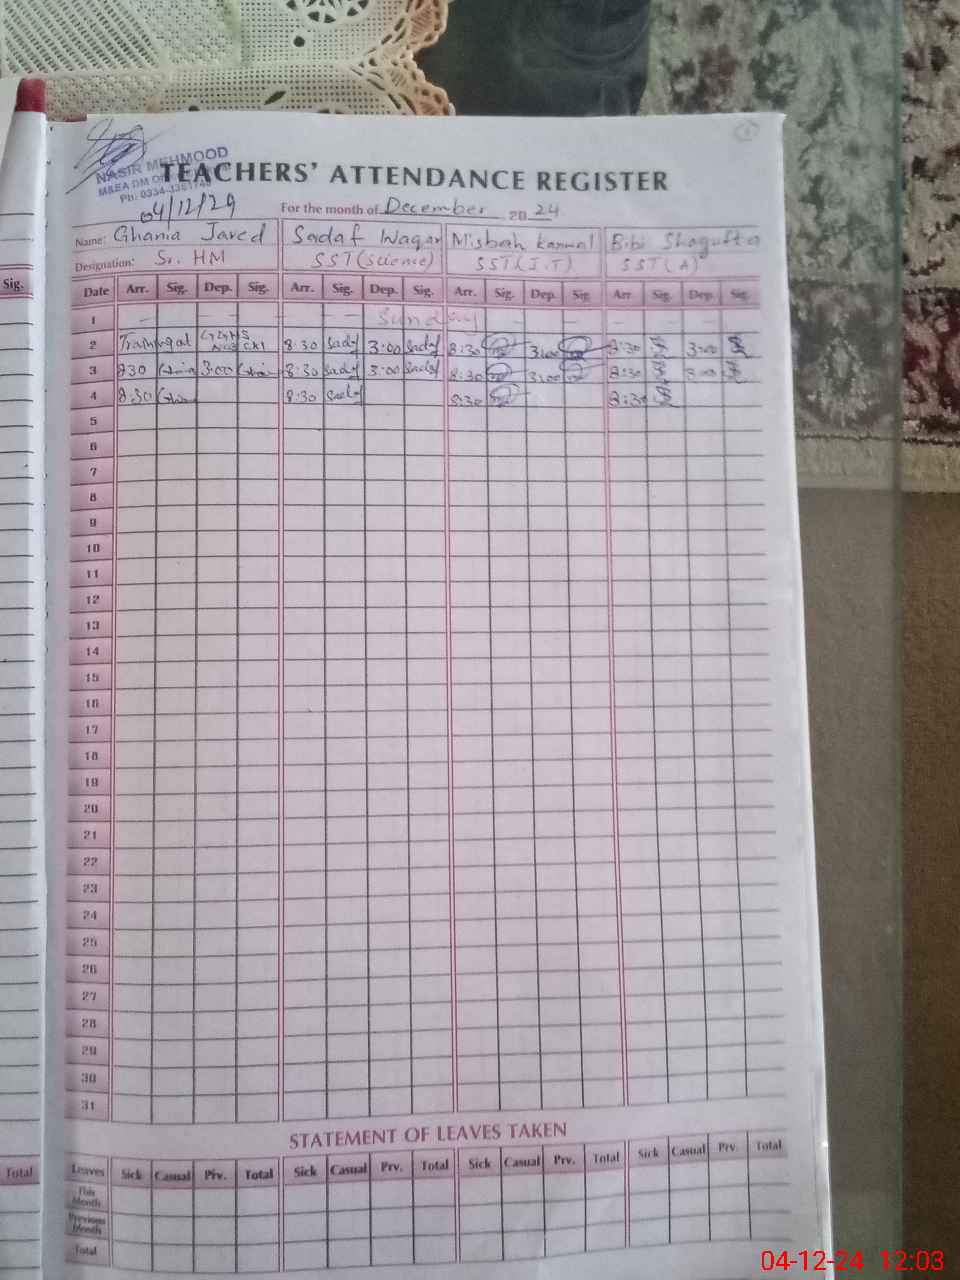 NASIR MEHMOOD
M&EA DM
Ph: 0334-3361740
04/12/24
TEACHERS' ATTENDANCE REGISTER
For the month of December 2024
Name: Ghania Javed Sadaf Waqar Misbah Kanwal Bibi Shagufta
Designation: Sr. HM SST (Science) SST (I.T) SST (A)
Sig. Date Arr. Sig. Dep. Sig. Arr. Sig. Dep. Sig. Arr. Sig. Dep. Sig. Arr. Sig. Dep. Sig.
1 - - - - - - Sunday - - - - - -
2 Training at GGHS No 2 8:30 Sadaf 3:00 Sadaf 8:30 3:00 8:30 3:00
3 830 Ghania 3:00 Ghania 8:30 Sadaf 3:00 Sadaf 8:30 3:00 8:30 3:00
4 8:30 Ghania 8:30 Sadaf 8:30 8:30
5
6
7
8
9
10
11
12
13
14
15
16
17
18
19
20
21
22
23
24
25
26
27
28
29
30
31
STATEMENT OF LEAVES TAKEN
Total Leaves Sick Casual Prv. Total Sick Casual Prv. Total Sick Casual Prv. Total Sick Casual Prv. Total
This Month
Previous Month
Total
04-12-24 12:03